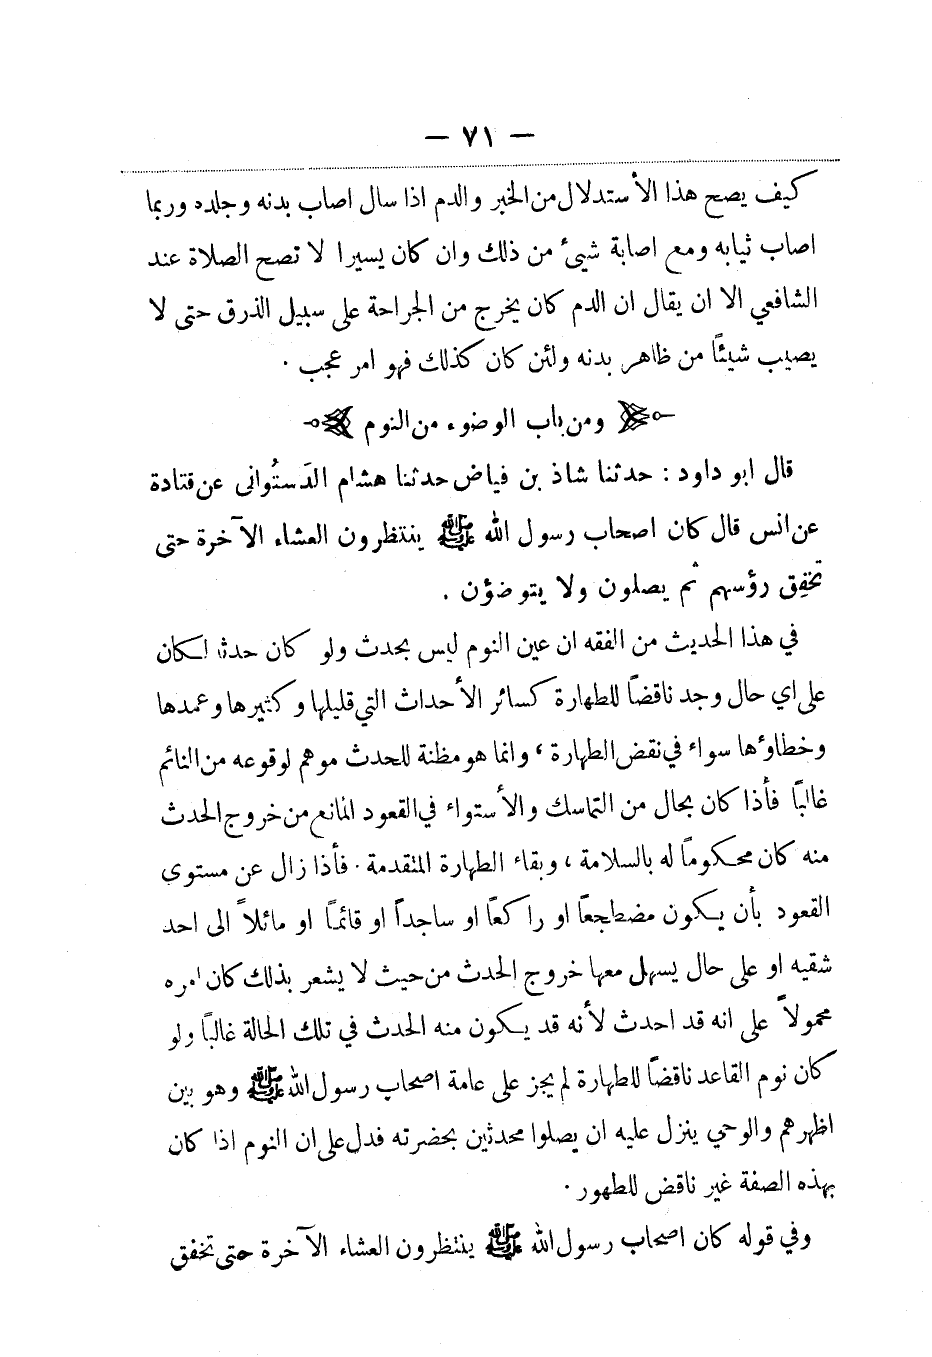 — ٧١ —
كيف يصح هذا الأستدلال من الخبر والدم اذا سال اصاب بدنه وجلده وربما
اصاب ثيابه ومع اصابة شيئ من ذلك وان كان يسيرا لا تصح الصلاة عند
الشافعي الا ان يقال ان الدم كان يخرج من الجراحة على سبيل الذرق حتى لا
يصيب شيئًا من ظاهر بدنه ولئن كان كذلك فهو امر عجب .
ومن باب الوضوء من النوم
قال ابو داود : حدثنا شاذ بن فياض حدثنا هشام الدَستُوانى عن قتادة
عن انس قال كان اصحاب رسول الله ﷺ ينتظرون العشاء الآخرة حتى
تخفِق رؤسهم ثم يصلون ولا يتوضؤن .
في هذا الحديث من الفقه ان عين النوم ليس بحدث ولو كان حدثا لكان
على اي حال وجد ناقضًا للطهارة كسائر الأحداث التي قليلها وكثيرها وعمدها
وخطاؤها سواء في نقض الطهارة ، وانما هو مظنة للحدث موهم لوقوعه من النائم
غالبًا فأذا كان بحال من التماسك والأستواء في القعود المانع من خروج الحدث
منه كان محكومًا له بالسلامة ، وبقاء الطهارة المتقدمة . فأذا زال عن مستوى
القعود بأن يكون مضطجعًا او راكعًا او ساجداً او قائمًا او مائلاً الى احد
شقيه او على حال يسهل معها خروج الحدث من حيث لا يشعر بذلك كان امره
محمولاً على انه قد احدث لأنه قد يكون منه الحدث في تلك الحالة غالبًا ولو
كان نوم القاعد ناقضًا للطهارة لم يجز على عامة اصحاب رسول الله ﷺ وهو بين
اظهرهم والوحي ينزل عليه ان يصلوا محدثين بحضرته فدل على ان النوم اذا كان
بهذه الصفة غير ناقض للطهور .
وفي قوله كان اصحاب رسول الله ﷺ ينتظرون العشاء الآخرة حتى تخفق